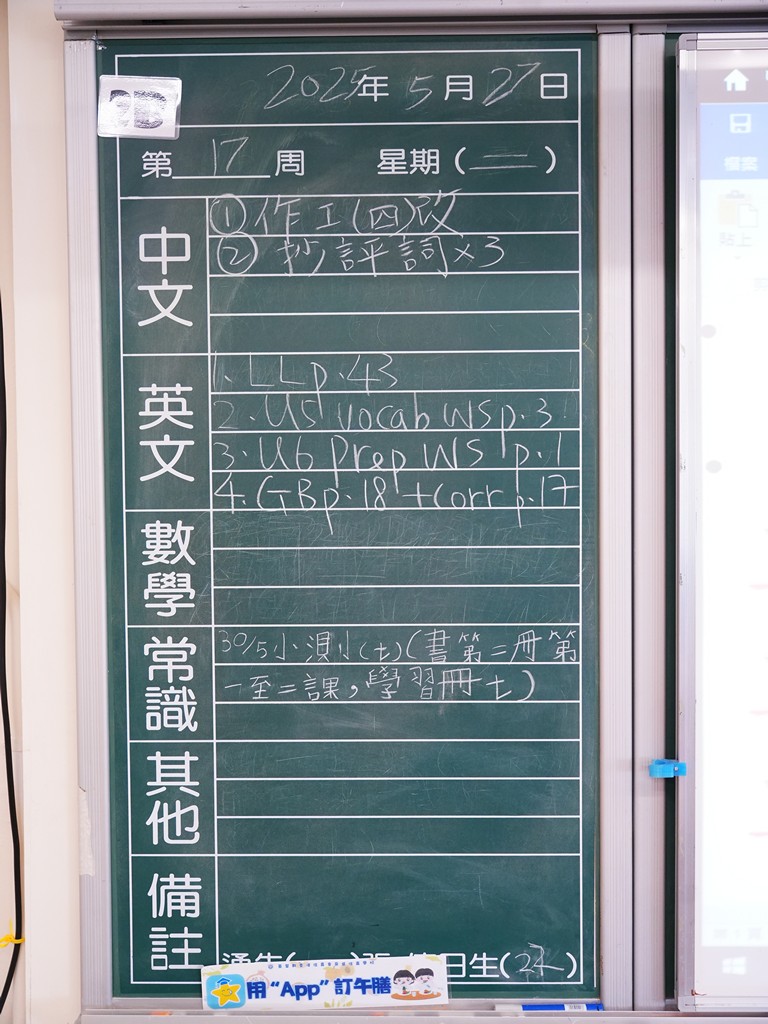 2025年5月27日
第17周 星期(二)
中文
①作工(四)改
②抄評詞×3
英文
1. LL p.43
2. U5 vocab WS p.3
3. U6 Prep WS p.1
4. GB p.18 + corr p.17
數學
常識
30/5小測(七)(書第二冊第
一至二課，學習冊七)
其他
備註
日生(24)
用“App”訂午膳
檔案
貼上